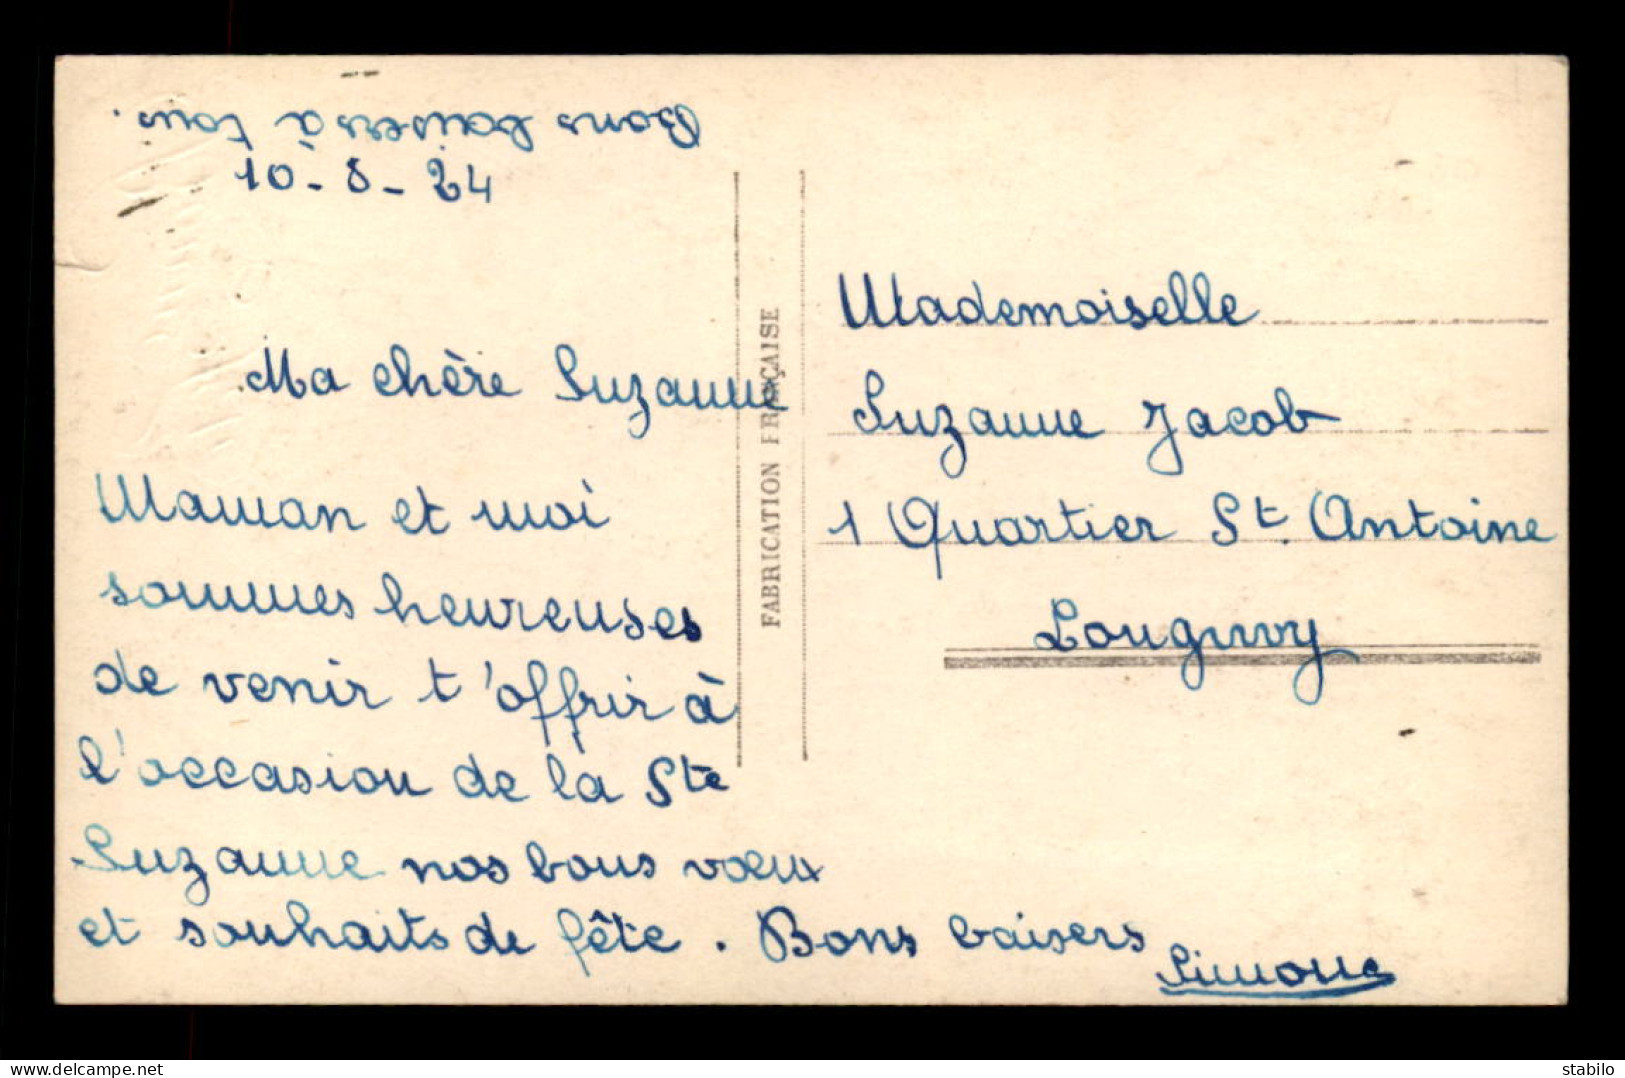 Bons baisers à tous.
10-8-24
Ma chère Suzanne
Maman et moi
sommes heureuses
de venir t'offrir à
l'occasion de la Ste
Suzanne nos bons vœux
et souhaits de fête. Bons baisers
Simone
FABRICATION FRANÇAISE
Mademoiselle
Suzanne Jacob
1 Quartier St. Antoine
Longwy
www.delcampe.net
stabilo